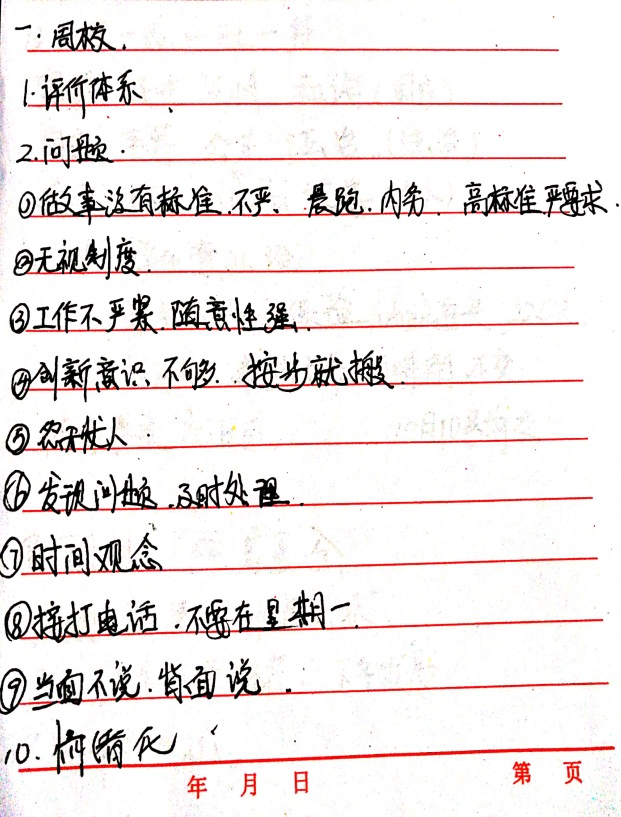 一.周校.
1.评价体系
2.问题.
①做事没有标准.不严、晨跑.内务.高标准严要求.
②无视制度.
③工作不严紧.随意性强.
④创新意识不够.按步就搬.
⑤人.
⑥发现问题.及时处理.
⑦时间观念
⑧接打电话.不要在星期一.
⑨当面不说.背面说.
10.情绪化
年 月 日 第 页